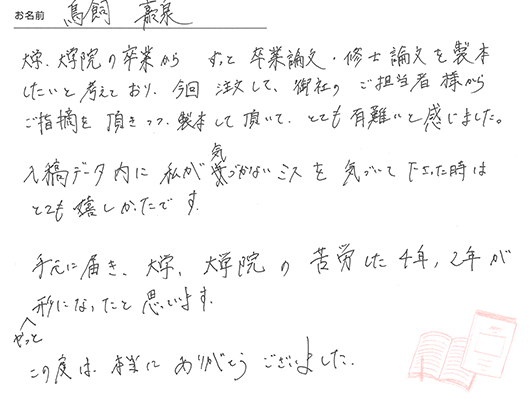 お名前 鳥飼 豪泉
大学、大学院の卒業から ずっと 卒業論文・修士論文を製本
したいと考えており、今回 注文して、御社の ご担当者様から
ご指摘を 頂きつつ、製本して頂いて、とても 有難いと感じました。
入稿データ内に 私が 気づかないミスを 気づいて下さった時は
とても 嬉しかったです。
手元に届き、大学、大学院の 苦労した 4年、2年が
やっと形になったと思います。
この度は、本当に ありがとう ございました。